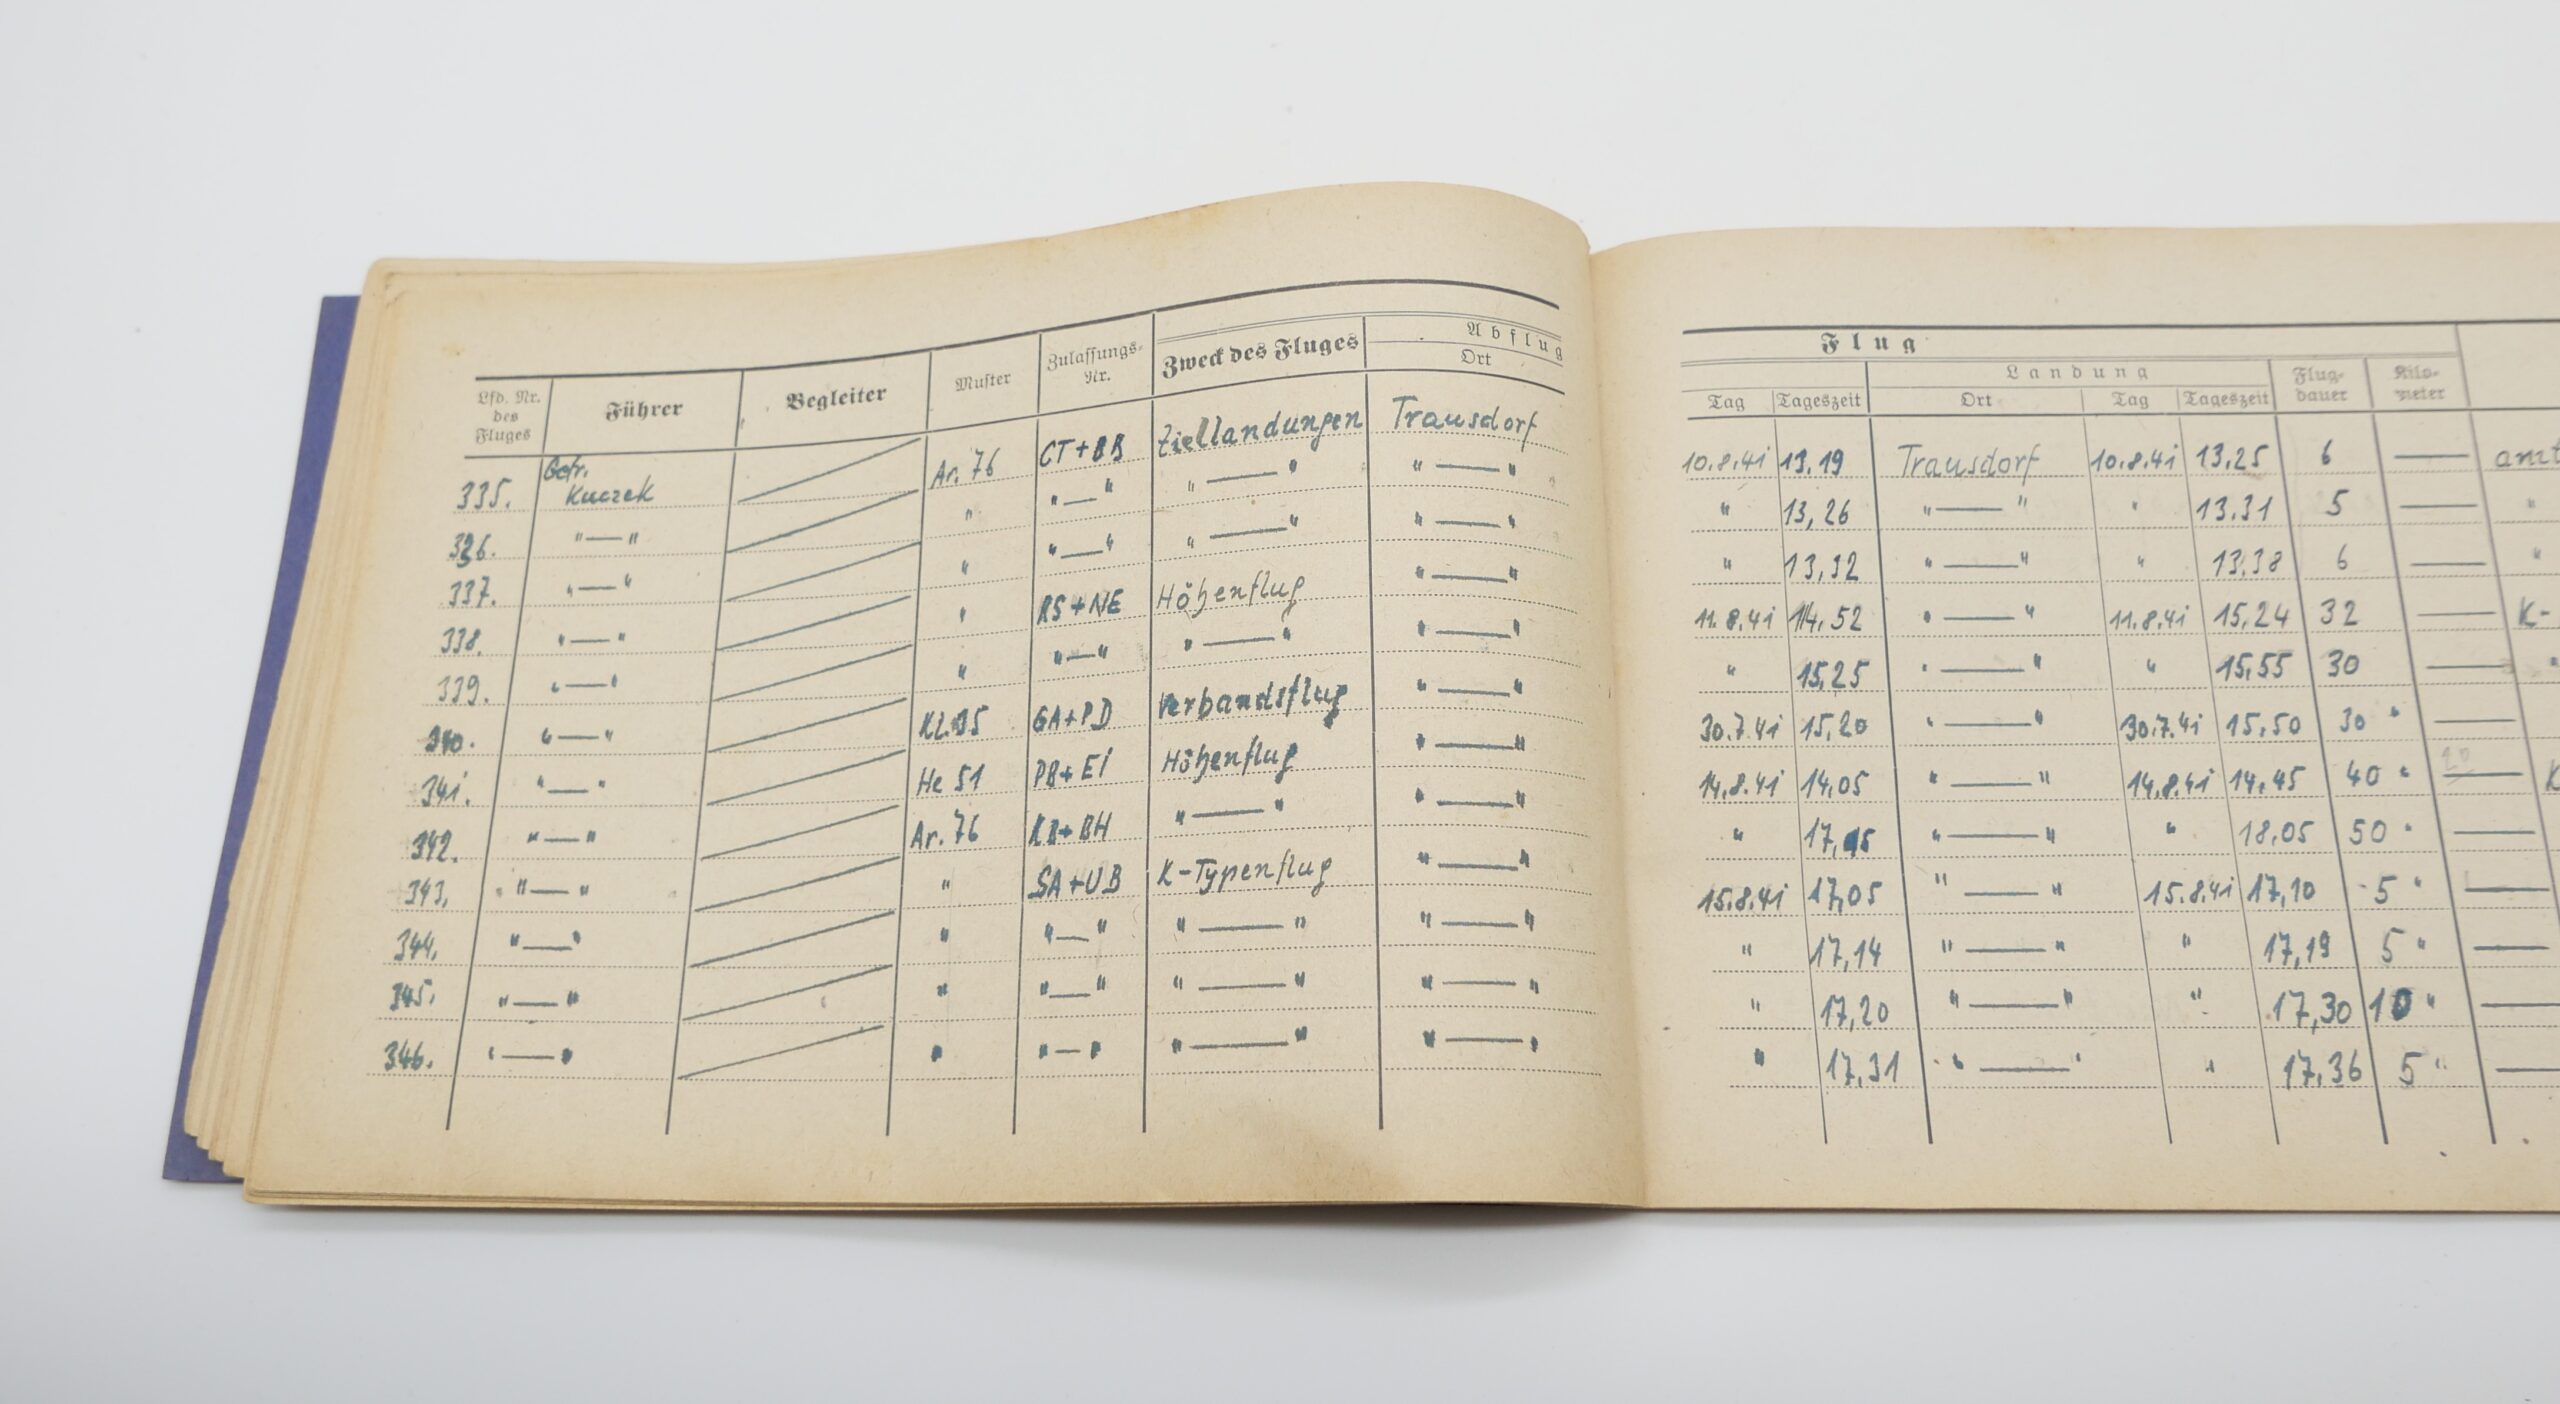 Lfd. Nr. des Fluges Führer Begleiter Muster Zulassungs-Nr. Zweck des Fluges Abflug Ort
335. Gefr. Kuczek Ar. 76 CT+BB Ziellandungen Trausdorf
326. " — " " " — " " — " " — "
337. " — " " " — " " — " " — "
338. " — " " RS+NE Höhenflug " — "
339. " — " " " — " " — " " — "
340. " — " Kl. 35 GA+PD Verbandsflug " — "
341. " — " He 51 PB+EI Höhenflug " — "
342. " — " Ar. 76 KB+BH " — " " — "
343. " — " " SA+UB K-Typenflug " — "
344. " — " " " — " " — " " — "
345. " — " " " — " " — " " — "
346. " — " " " — " " — " " — "
Flug
Landung
Tag Tageszeit Ort Tag Tageszeit Flug-dauer Kilo-meter
10.8.41 13.19 Trausdorf 10.8.41 13.25 6 —
" 13,26 " — " " 13.31 5 —
" 13,32 " — " " 13.38 6 —
11.8.41 14,52 " — " 11.8.41 15,24 32 — K-
" 15,25 " — " " 15,55 30 —
30.7.41 15,20 " — " 30.7.41 15,50 30 " —
14.8.41 14,05 " — " 14.8.41 14,45 40 " — K
" 17,15 " — " " 18,05 50 " —
15.8.41 17,05 " — " 15.8.41 17,10 5 " —
" 17,14 " — " " 17,19 5 " —
" 17,20 " — " " 17,30 10 " —
" 17,31 " — " " 17,36 5 " —